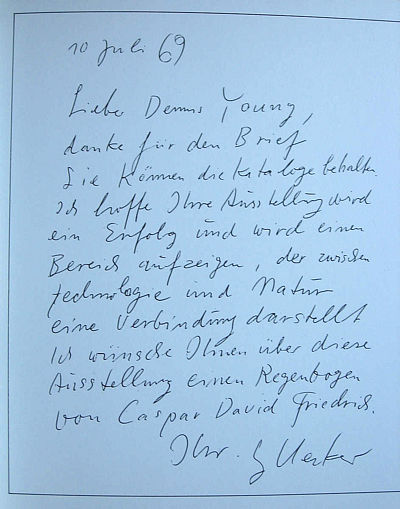 10 Juli 69
Lieber Dennis Young,
danke für den Brief
Sie können die Kataloge behalten.
Ich hoffe Ihre Ausstellung wird
ein Erfolg und wird einen
Bereich aufzeigen, der zwischen
Technologie und Natur
eine Verbindung darstellt
Ich wünsche Ihnen über diese
Ausstellung einen Regenbogen
von Caspar David Friedrich.
Ihr. G Uecker